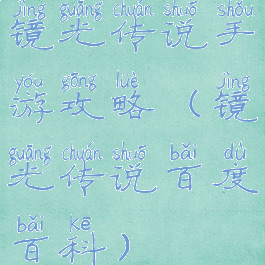 jìng guāng chuán shuō shǒu
镜光传说手
yóu gōng lüè jìng
游攻略(镜
guāng chuán shuō bǎi dù
光传说百度
bǎi kē
百科)